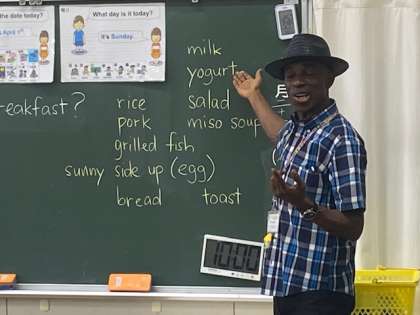 the date today?
April 1st
What day is it today?
It's Sunday.
milk
yogurt
reakfast?
rice
salad
月
pork
miso soup
grilled fish
sunny side up (egg)
bread
toast